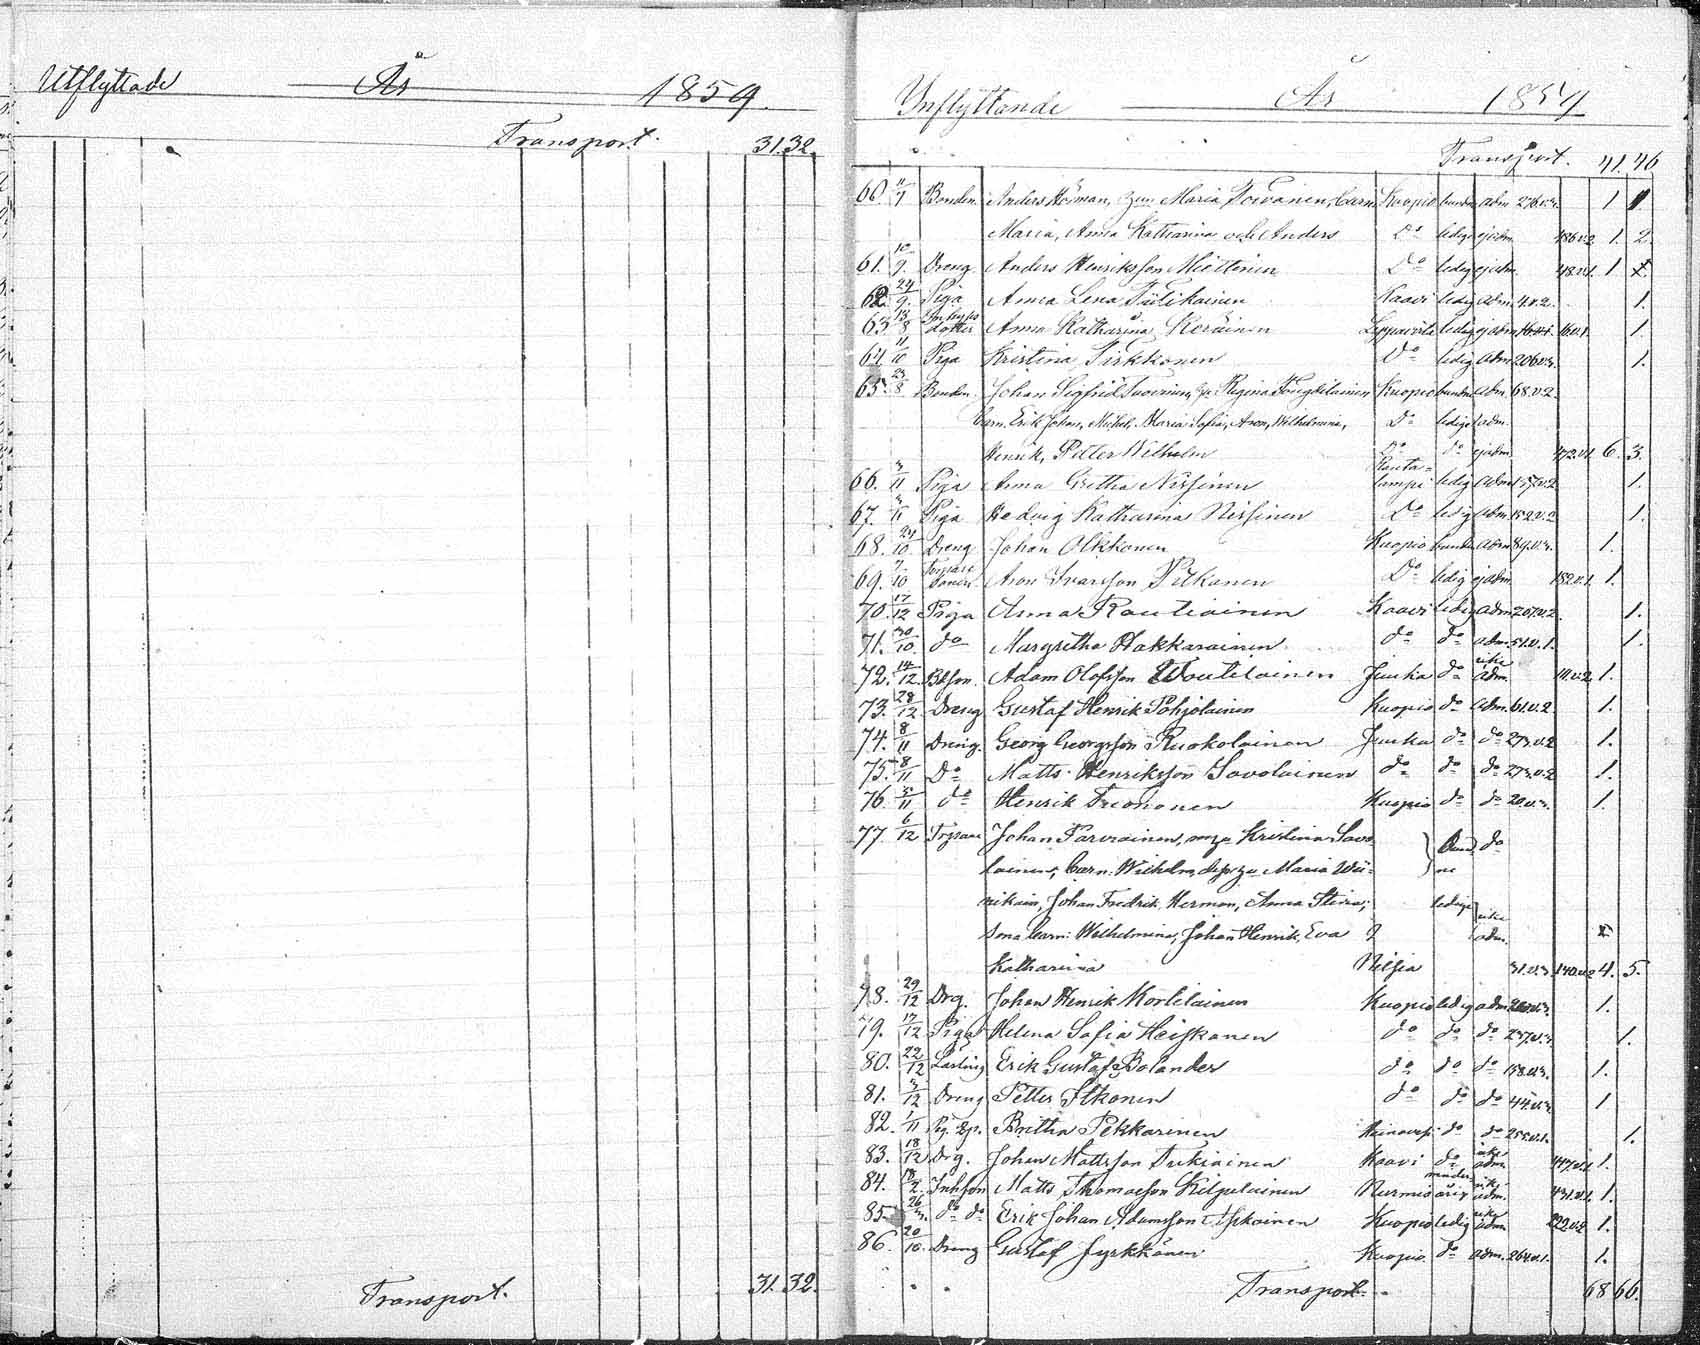 Utflyttade År 1859.
Transport. 31. 32.
Transport. 31. 32.
Inflyttande År 1859
Transport. 41. 46
60. 11/9 Bonden Anders Höiman, Maria Toivanen, barn Kuopio adm. 276.v.3. 1
Maria, Anna Katharina och Anders Do ledige ejadm. 486.v.2 1. 2.
61. 10/9. Dreng Anders Henriksson Miettinen Do ledig ejadm. 48.v.1 1
62. 24/9. Piga Anna Lena Tulikainen Kaavi ledig adm. 4.v.2. 1.
63. 13/8 Inhyses dotter Anna Katharina Keräinen Leppävirta ledig ejadm 16.v.1. 1.
64. 11/11 Piga Kristina Pirkkonen Do ledig adm. 206.v.3. 1.
65. 23/8 Bonden Johan Sigfrid Regina Kuopio adm. 68.v.2.
barn. Erik Johan, Michel, Maria Sofia, Aron, Wilhelmina, Do ledige adm.
Henrik, Petter Wilhelm Do do ejadm. 472.v.1. 6. 3.
66. 3/11 Piga Anna Gretha Nissinen Rautalampi ledig adm 157.v.2 1.
67. 3/11 Piga Hedvig Katharina Nissinen Do ledig adm 152.v.2 1.
68. 24/10 Dreng Johan Olkkonen Kuopio adm 89.v.3. 1.
69. 7/10 Aron Ivarsson Pitkänen Do ledig ejadm. 182.v.1. 1.
70. 17/12 Piga Anna Rautiainen Kaavi ledig adm 207.v.2. 1.
71. 30/10. do Margretha Hakkarainen do do adm. 51.v.1. 1.
72. 14/12. Bdson. Adam Olofsson Woutilainen Juuka do icke adm. 111.v.2 1.
73. 28/12 Dreng Gustaf Henrik Pohjolainen Kuopio do adm. 61.v.2 1.
74. 8/11 Dreng. Georg Georgsson Ruokolainen Juuka do do 273.v.2 1.
75. 8/11 Do Matts Henriksson Savolainen do do do 273.v.2 1.
76. 3/11 do Henrik Kuopio do do 20.v.3. 1.
77. 6/12 Johan Parviainen, Kristina Savolainen, barn: Wilhelm, Maria
Johan Fredrik, Herman, Anna Stina; ledige
barn: Wilhelmina, Johan Henrik, Eva icke adm.
Katharina Nilsia 31.v.3. 130.v.2 4. 5.
78. 29/12 Drg. Johan Henrik Kortilainen Kuopio ledig adm. 1.
79. 17/12 Piga Helena Sofia Heiskanen do do do 237.v.3. 1.
80. 22/12 Lärling Erik Gustaf Bolander do do do 158.v.3. 1.
81. 3/12 Dreng Petter Itkonen do do do 44.v.3. 1
82. 1/11 Pig. Britha Pekkarinen Heinävesi do do 255.v.1. 1.
83. 18/12 Drg. Johan Mattsson Tukiainen Kaavi do icke adm. 447.v.1 1.
84. 18/2. Inhson Matts Thomasson Kilpelainen Nurmis minder årig icke adm. 431.v.1. 1.
85. 26/3. do do Erik Johan Adamsson Kuopio ledig icke adm 222.v.2 1.
86. 20/10. Dreng Gustaf Jyrkkänen Kuopio do adm. 264.v.1. 1.
Transport. 68 66.